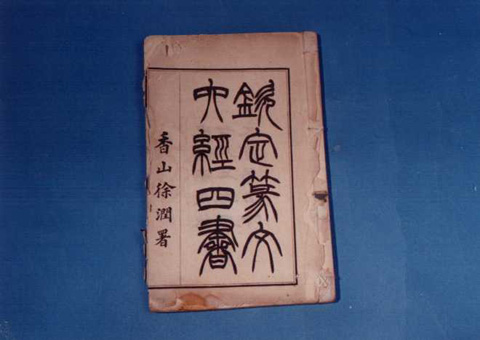 欽定篆文
六經四書
香山徐潤署